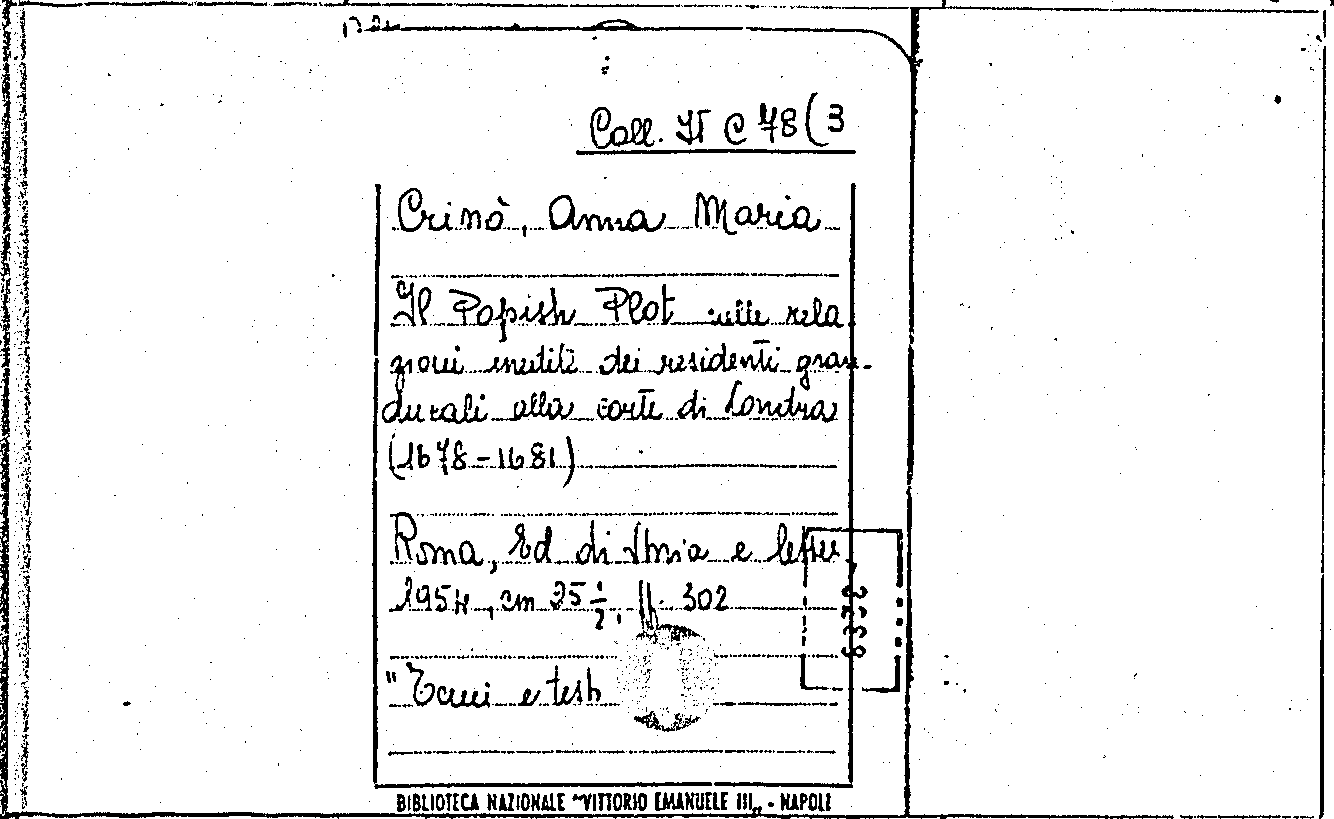 Coll. VI C 78 (3
Crinò, Anna Maria
Il Popish Plot nelle rela
zioni inedite dei residenti gran-
ducali alla corte di Londra
(1678-1681)
Roma, Ed di Storia e letter.
1954, cm 25 1/2, pp. 302
"Temi e testi
BIBLIOTECA NAZIONALE "VITTORIO EMANUELE III„ - NAPOLI